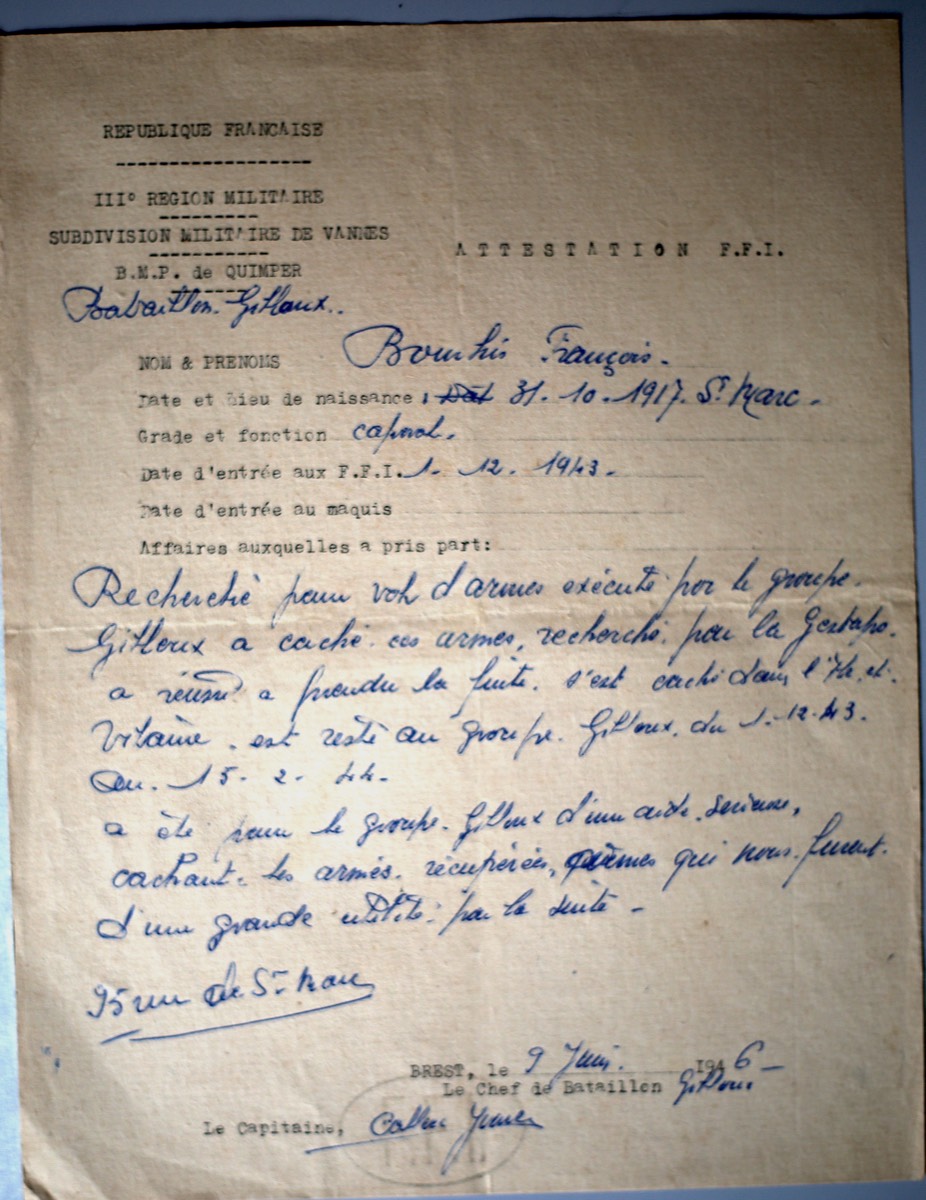 REPUBLIQUE FRANCAISE
III° REGION MILITAIRE
SUBDIVISION MILITAIRE DE VANNES
ATTESTATION F.F.I.
B.M.P. de QUIMPER
Bataillon. Gilloux.
NOM & PRENOMS Bourhis François.
Date et Lieu de naissance : 31. 10. 1917. St Marc.
Grade et fonction caporal.
Date d'entrée aux F.F.I. 1. 12. 1943.
Date d'entrée au maquis
Affaires auxquelles a pris part:
Recherché pour vol d'armes exécuté par le groupe.
Gilloux a caché ces armes, recherché par la Gestapo.
a réussi a prendre la fuite. s'est caché dans l'Ile. et.
Vilaine. est resté au groupe. Gilloux. du 1. 12. 43.
au. 15. 2. 44.
a été pour le groupe. Gilloux d'une aide serieuse,
cachant. les armes. récupérées, armes qui nous. furent.
d'une grande utilité. par la suite.
95 rue de St Marc
BREST, le 9 Juin. 1946
Le Chef de Bataillon Gilloux
Le Capitaine,